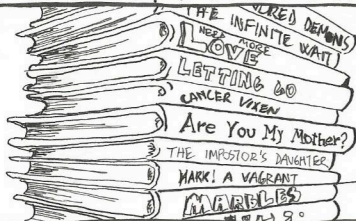 DEMONS
THE INFINITE WAIT
NEED MORE
LOVE
LETTING GO
CANCER VIXEN
Are You My Mother?
THE IMPOSTOR'S DAUGHTER
HARK! A VAGRANT
MARBLES